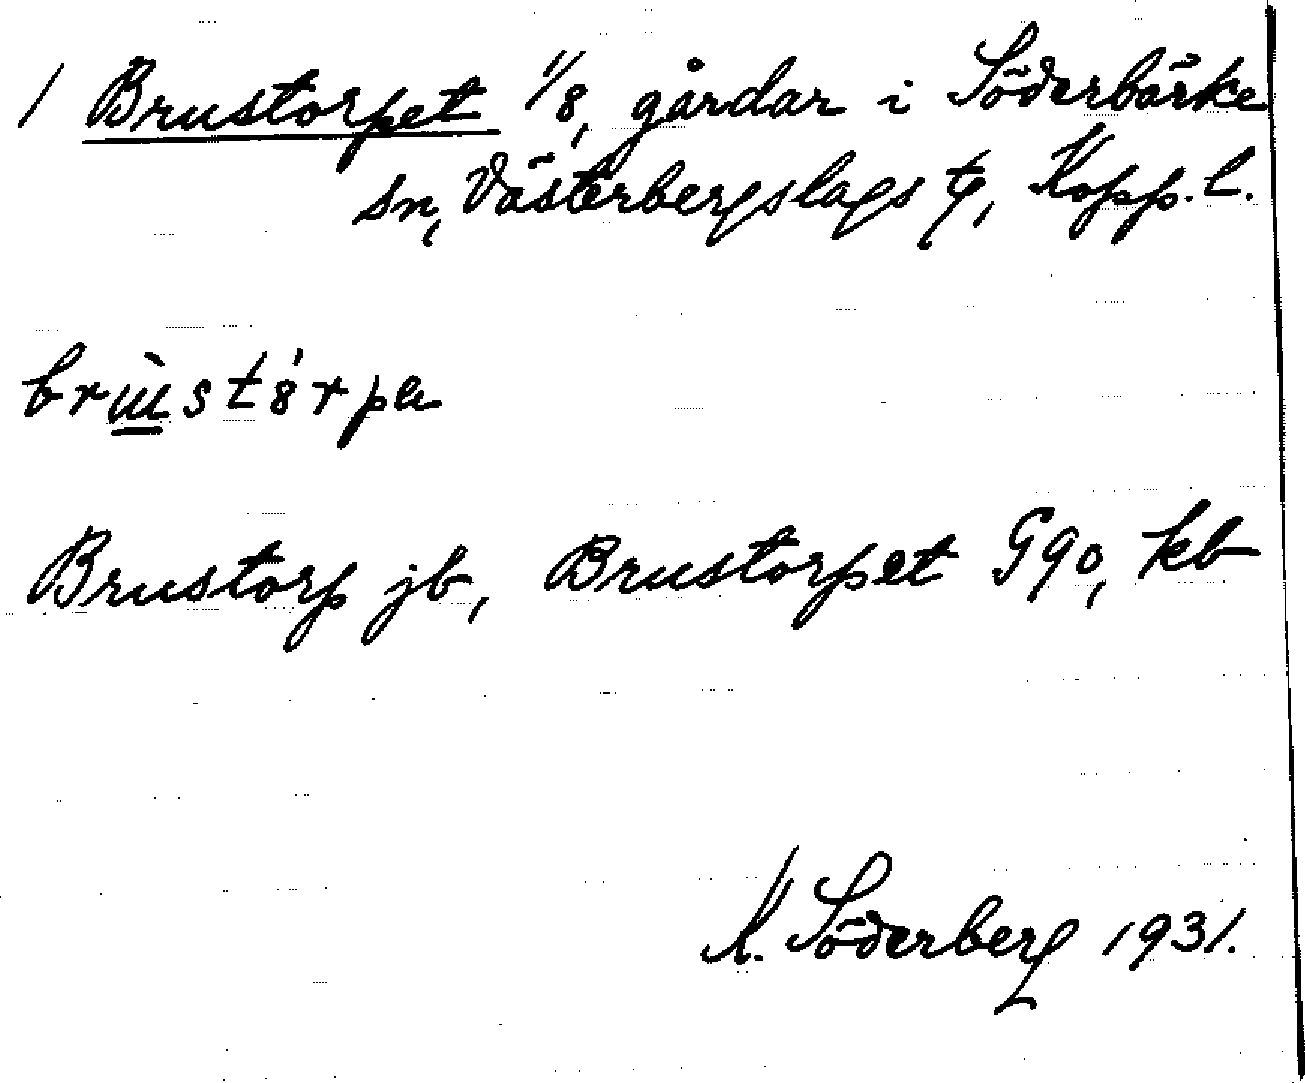 / Brustorpet 1/8, gårdar i Söderbärke
sn, Västerbergslags tg, Kopp. l.
Brustorp jb, Brustorpet G90, kb
K. Söderberg 1931.